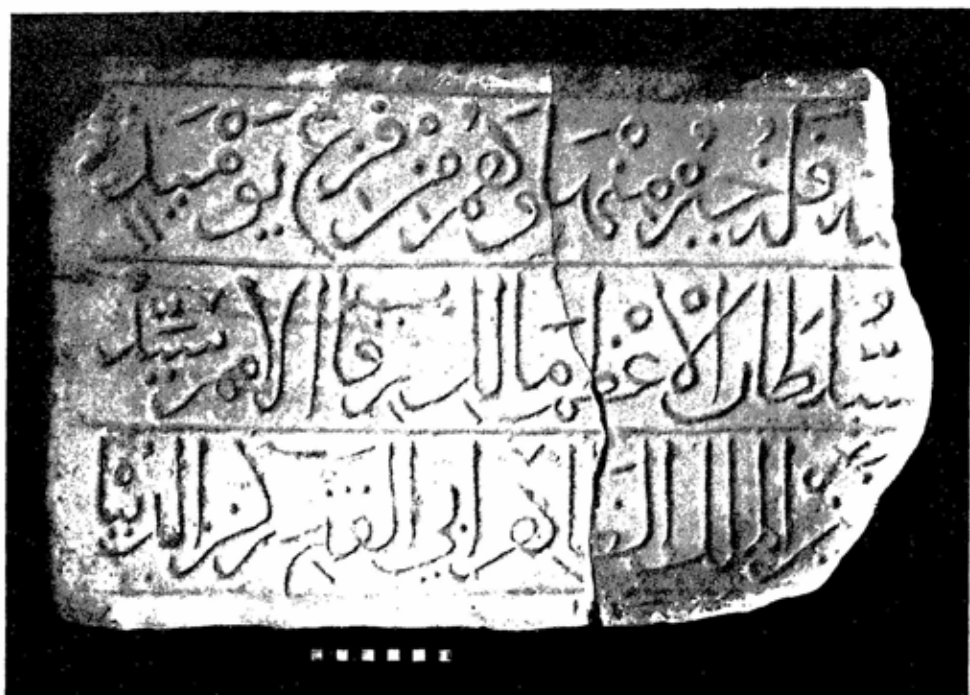 فله خير منها وهم من فزع يومئذ
سلطان الاعظم مالك رقاب الامم سيد
الملك القاهر ابي الفتح ركن الدنيا